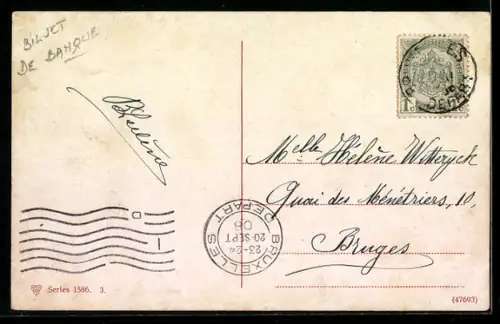 BILJET
DE BANQUE
Hélène
1c
DEPART
Melle Hélène Wittryck
Quai des Ménétriers, 10,
Bruges
BRUXELLES
23-24
20 SEPT
08
DEPART
D
Series 1586. 3.
(47693)